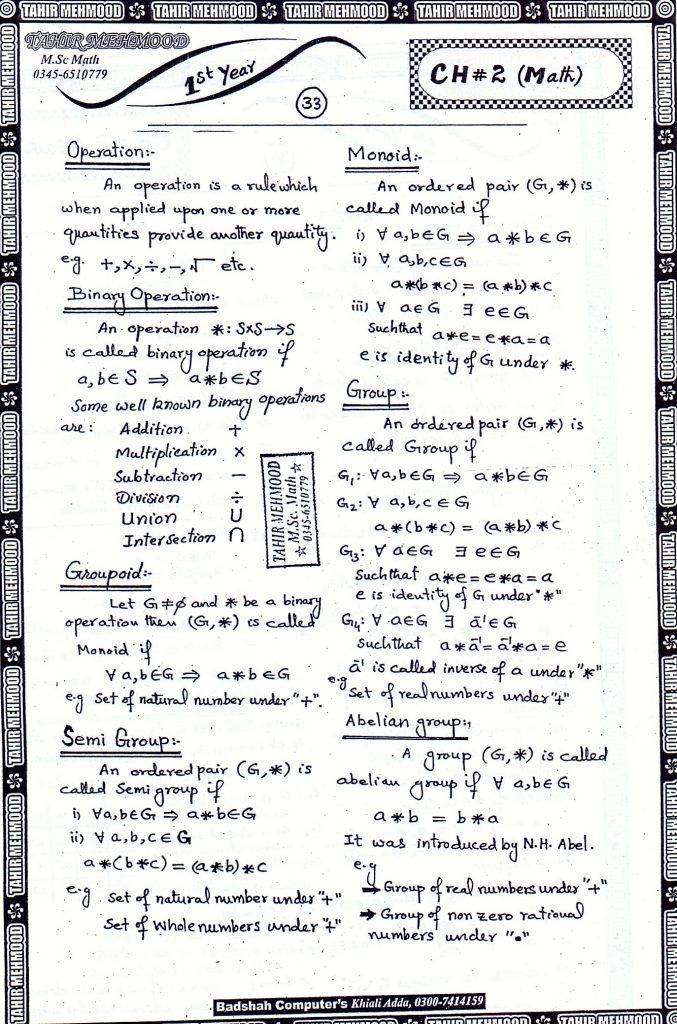 TAHIR MEHMOOD TAHIR MEHMOOD TAHIR MEHMOOD TAHIR MEHMOOD TAHIR MEHMOOD
TAHIR MEHMOOD
M.Sc Math
0345-6510779
1st Year
33
CH#2 (Math)
Operation:-
An operation is a rule which
when applied upon one or more
quantities provide another quantity.
e.g. +, ×, ÷, −, √ etc.
Binary Operation:-
An operation *: S×S→S
is called binary operation if
a,b∈S ⇒ a*b∈S
Some well known binary operations
are: Addition +
Multiplication ×
Subtraction −
Division ÷
Union ∪
Intersection ∩
TAHIR MEHMOOD
☆ M.Sc. Math ☆
☆ 0345-6510779
Groupoid:-
Let G≠∅ and * be a binary
operation then (G,*) is called
Monoid if
∀ a,b∈G ⇒ a*b∈G
e.g Set of natural number under "+".
Semi Group:-
An ordered pair (G,*) is
called Semi group if
i) ∀a,b∈G ⇒ a*b∈G
ii) ∀ a,b,c∈G
a*(b*c) = (a*b)*c
e.g Set of natural number under "+"
Set of Whole numbers under "+"
Monoid:-
An ordered pair (G,*) is
called Monoid if
i) ∀ a,b∈G ⇒ a*b∈G
ii) ∀ a,b,c∈G
a*(b*c) = (a*b)*c
iii) ∀ a∈G ∃ e∈G
Such that a*e=e*a=a
e is identity of G under *.
Group:-
An ordered pair (G,*) is
called Group if
G₁: ∀a,b∈G ⇒ a*b∈G
G₂: ∀ a,b,c∈G
a*(b*c) = (a*b)*c
G₃: ∀ a∈G ∃ e∈G
Such that a*e=e*a=a
e is identity of G under "*"
G₄: ∀ a∈G ∃ a⁻¹∈G
Such that a*a⁻¹=a⁻¹*a=e
a⁻¹ is called inverse of a under "*"
e.g
Set of real numbers under "+"
Abelian group:,
A group (G,*) is called
abelian group if ∀ a,b∈G
a*b = b*a
It was introduced by N.H. Abel.
e.g
→ Group of real numbers under "+"
→ Group of non zero rational
numbers under "•"
Badshah Computer's Khiali Adda, 0300-7414159